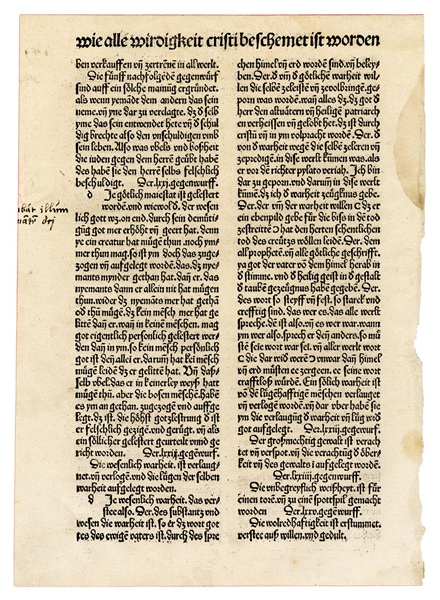 wie alle wirdigkeit cristi beschemet ist worden
ben verkauffen vn̄ zertrēnē in all werlt.
Die fünff nachfolgēdē gegenwürf
sind auff ein sölche mainūg ergründet.
als wenn yemādt dem andern das sein
neme. vn̄ yne dar zu verclagte. dz d̄ selb
yne das sein entwendet hete vn̄ d̄ schul
dig brechte also den vnschuldigen vmb
sein leben. Also was vbels vnd boßheit
die iuden gegen dem herrē geübt habē
des habē sie den herrē selbs felschlich
beschuldigt. Der .lxxi. gegenwurf.
Je götlich maiestat ist gelestert
wordē. vnd wiewol d̄. der wesen
lich got
gig got mer erhöht vn̄ geert hat. denn
ye ein creatur hat mügē thun. noch ym
mer thun mag. so ist yn doch das zuge
zogen vn̄ aufgelegt wordē. das. dz nye
mants mynder gethan hat. Dañ er. das
nyemants dann er allein nit hat mügen
thun. wider dz nyemāts mer hat gethā
götlitten
got eigentlich persenlich gelestert wer
den dañ in yn. so kein mēsch persenlich
got ist deñ allei er. darum̄ hat kei mēsch
müge leidē dz er gelittē hat. Vn̄ daz
selb vbel. das er in keinerley weyß hatt
mügē thū. aber die bosen mēschē. habē
es ym an gethan. zugezogē vnd auffge
legt. dz ist. die höhst gotzlestrung d̄ ist
er felschlich gezigē. vnd gerügt. vn̄ als
ein sölicher gelesterer geurteilt vnnd ge
richt worden. Der .lxxij. gegēwurf.
Die wesenlich warheit. ist verlaug
net. vn̄ verlogē. vnd die lügen der selben
warheit aufgelegt worden.
Je wesenlich warheit. das ver
stee also. Der. des substantz vnd
wesen die warheit ist. so er dz wort got
tes des ewigē vaters ist. durch des spre
chen himel vn̄ erd wordē sind. vn̄ beley
ben. Der. d̄ vm̄ d̄ götliche warheit wil
len die selbē zeleistē vn̄ zevolbringē. ge
porn was wordē. wañ alles dz. dz got d̄
herr den altuātern vn̄ heiligē patriarch
en verheissen vn̄ gelobt het. dz ist durch
cristū vn̄ in ym volpracht wordē. Der. d̄
von d̄ warheit wege die selbē zeleren vn̄
zepredigē. in dise werlt kūmen was. als
er vor dē richter pylato veriah. Ich bin
dar zu geporn. vnd darum̄ in dise werlt
kūmē. dz ich d̄ warheit zeügknus gebe.
ein ebenpild gebe für die biß in dē tod
des creützs wöllen leidē. Der. dem
all prophetē. vn̄ alle götliche geschrifft.
ya got der vater vō dem himel herab in
d̄ stimme. vnd d̄ heilig geist in d̄ gestalt
d̄ taubē gezeügnus habē gegebē. Der.
des wort so steyff vn̄ fest. so starck vnd
creffttig sind. das wer es. das alle werlt
spreche. dē ist also. vn̄ es wer war. wann
ym wer also. sprech er deñ anders. so mü
ste sein wort war sei. vn̄ aller werlt wort
vn̄ erd müsten ee zergeen. ee seine wort
trafftloß würdē. Ein sölich warheit ist
vō dē lügēhafftigē menschen verlauget
vn̄ verlogē wordē. vn̄ dar vber habē sie
ym die verlaugūg d̄ warheit vn̄ lüg vō
got aufgelegt. Der .lxxiij. gegenwurf.
Der großmechtig gewalt ist verach
tet vn̄ verspot. vn̄ die verachtūg d̄ öber
keit vn̄ des gewalts i aufgelegt wordē.
Der .lxxiiij. gegenwurff.
Die vnbegreyflich weißheyt. ist für
einen torē. vn̄ zu eine spottspil gemacht
worden Der .lxxv. gegē wurff.
Die wolredhaftigkeit ist erstummet.
verstee auß willen. vnd gedult.